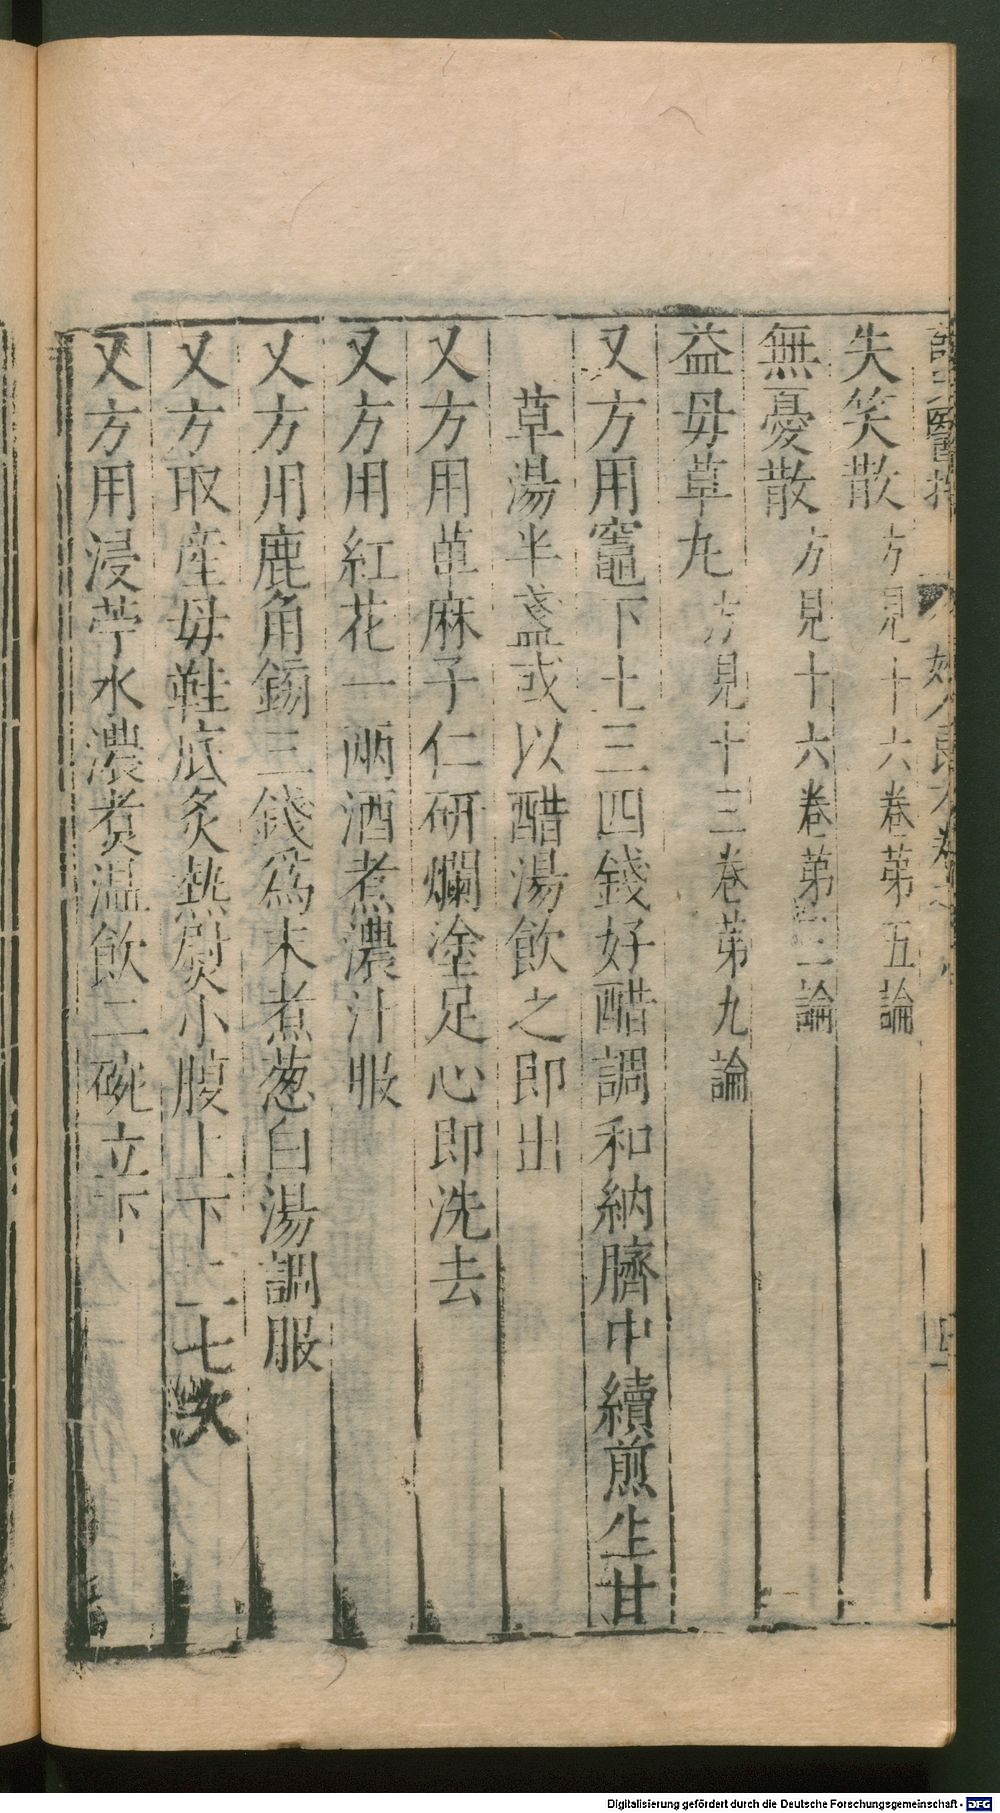 失笑散 方見十六卷第五論
無憂散 方見十六卷第二論
益毋草丸 方見十三卷第九論
又方用竈下土三四錢好醋調和納臍中續煎生甘
草湯半盞或以醋湯飲之即出
又方用萆麻子仁研爛塗足心即洗去
又方用紅花一兩酒煮濃汁服
又方用鹿角鎊三錢爲末煮葱白湯調服
又方取産毋鞋底炙熱熨小腹上下二七次
又方用浸苧水濃煮温飲二碗立下
Digitalisierung gefördert durch die Deutsche Forschungsgemeinschaft - DFG